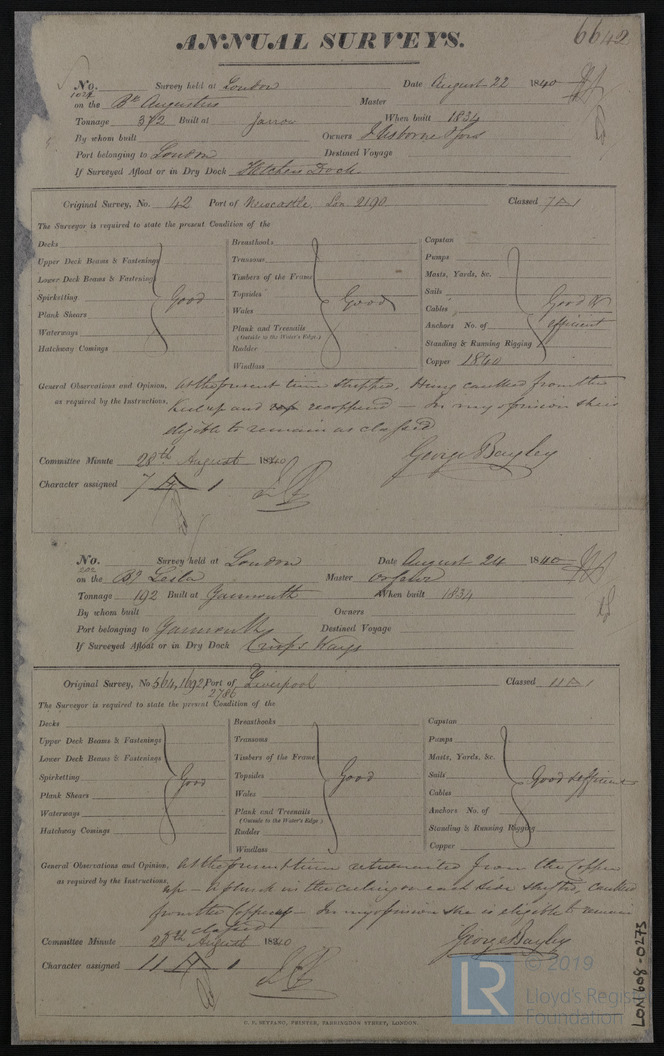 ANNUAL SURVEYS.
6642
No. Survey held at London Date August 22 1840
on the Bk Augustus Master
Tonnage 372 Built at Jarrow When built 1834
By whom built Owners
Port belonging to London Destined Voyage
If Surveyed Afloat or in Dry Dock Fletchers Dock
Original Survey, No. 42 Port of Newcastle, Lon 2190 Classed 7 A 1
The Surveyor is required to state the present Condition of the
Decks Breasthooks Capstan
Upper Deck Beams & Fastenings Transoms Pumps
Lower Deck Beams & Fastenings Timbers of the Frame Masts, Yards, &c.
Spirketting Good Topsides Good Sails Good &
Plank Shears Wales Cables efficient
Waterways Plank and Treenails Anchors No. of
(Outside to the Water's Edge)
Hatchway Comings Rudder Standing & Running Rigging
Windlass Copper 1840
General Observations and Opinion, At the present time stripped, being caulked from the
as required by the Instructions. Keel up and recoppered — In my opinion she is
eligible to remain as classed
George Bayley
Committee Minute 28th August 1840
Character assigned 7 A 1
No. Survey held at London Date August 24 1840
on the Bg Leslie Master
Tonnage 192 Built at Yarmouth When built 1834
By whom built Owners
Port belonging to Yarmouth Destined Voyage
If Surveyed Afloat or in Dry Dock Crisp's Ways
Original Survey, No 564, 1692 Port of Liverpool Classed 11 A 1
2786
The Surveyor is required to state the present Condition of the
Decks Breasthooks Capstan
Upper Deck Beams & Fastenings Transoms Pumps
Lower Deck Beams & Fastenings Timbers of the Frame Masts, Yards, &c.
Spirketting Good Topsides Good Sails Good & efficient
Plank Shears Wales Cables
Waterways Plank and Treenails Anchors No. of
(Outside to the Water's Edge)
Hatchway Comings Rudder Standing & Running Rigging
Windlass Copper
General Observations and Opinion, At the present time from the Copper
as required by the Instructions. up — a strake in the ceiling on each side caulked
from the Copper up — In my opinion she is eligible to remain
as classed
George Bayley
Committee Minute 28th August 1840
Character assigned 11 A 1
LR © 2019
Lloyd's Register
Foundation
LON608-0275
PRINTER, FARRINGDON STREET, LONDON.